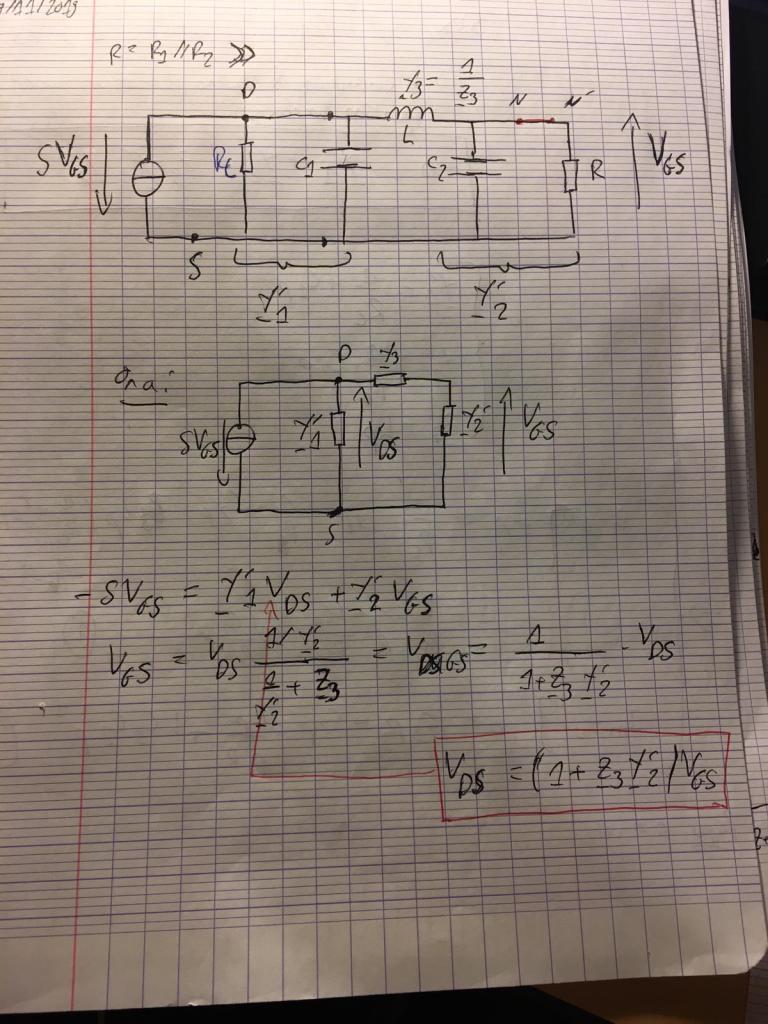 9/11/2019
R = R1 // R2 >>
D
Y3 = 1/Z3
N N'
SVGS
Rt
C1
L
C2
R
VGS
S
Y'1
Y'2
On a :
D
Y3
SVGS
Y'1
VDS
Y'2
VGS
S
- SVGS = Y'1 VDS + Y'2 VGS
VGS = VDS (1/Y'2) / (1/Y'2 + Z3) = VGS = 1 / (1 + Z3 Y'2) · VDS
VDS = (1 + Z3 Y'2) VGS